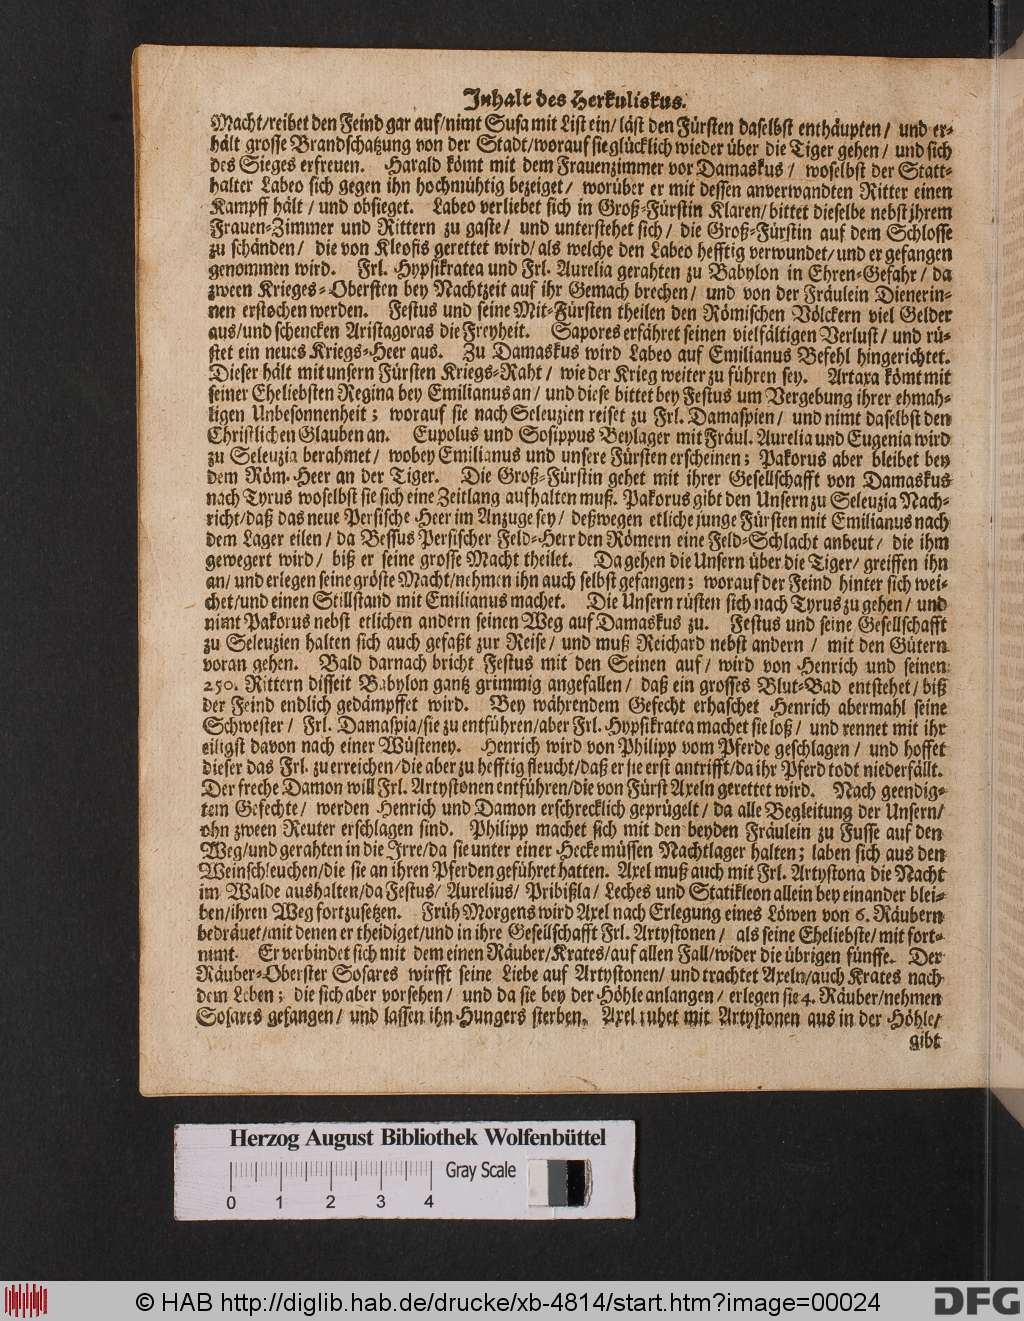 Inhalt des Herkuliskus.
Macht/reibet den Feind gar auf/nimt Susa mit List ein/ läst den Fürsten daselbst enthäupten/ und er-
hält grosse Brandschatzung von der Stadt/worauf sie glücklich wieder über die Tiger gehen/ und sich
des Sieges erfreuen. Harald kömt mit dem Frauenzimmer vor Damaskus/ woselbst der Statt-
halter Labeo sich gegen ihn hochmühtig bezeiget/ worüber er mit dessen anverwandten Ritter einen
Kampff hält/ und obsieget. Labeo verliebet sich in Groß-Fürstin Klaren/ bittet dieselbe nebst jhrem
Frauen-Zimmer und Rittern zu gaste/ und unterstehet sich/ die Groß-Fürstin auf dem Schlosse
zu schänden/ die von Kleofis gerettet wird/ als welche den Labeo hefftig verwundet/ und er gefangen
genommen wird. Frl. Hypsikratea und Frl. Aurelia gerahten zu Babylon in Ehren-Gefahr/ da
zween Krieges-Obersten bey Nachtzeit auf ihr Gemach brechen/ und von der Fräulein Dienerin-
nen erstochen werden. Festus und seine Mit-Fürsten theilen den Römischen Völckern viel Gelder
aus/und schencken Aristagoras die Freyheit. Sapores erfähret seinen vielfältigen Verlust/ und rü-
stet ein neues Kriegs-Heer aus. Zu Damaskus wird Labeo auf Emilianus Befehl hingerichtet.
Dieser hält mit unsern Fürsten Kriegs-Raht/ wie der Krieg weiter zu führen sey. Artaxa kömt mit
seiner Eheliebsten Regina bey Emilianus an/ und diese bittet bey Festus um Vergebung ihrer ehmah-
ligen Unbesonnenheit; worauf sie nach Seleuzien reiset zu Frl. Damaspien/ und nimt daselbst den
Christlichen Glauben an. Eupolus und Sosippus Beylager mit Fräul. Aurelia und Eugenia wird
zu Seleuzia berahmet/ wobey Emilianus und unsere Fürsten erscheinen; Pakorus aber bleibet bey
dem Röm. Heer an der Tiger. Die Groß-Fürstin gehet mit ihrer Gesellschafft von Damaskus
nach Tyrus woselbst sie sich eine Zeitlang aufhalten muß. Pakorus gibt den Unsern zu Seleuzia Nach-
richt/daß das neue Persische Heer im Anzuge sey/ deßwegen etliche junge Fürsten mit Emilianus nach
dem Lager eilen/ da Bessus Persischer Feld-Herr den Römern eine Feld-Schlacht anbeut/ die ihm
gewegert wird/ biß er seine grosse Macht theilet. Da gehen die Unsern über die Tiger/ greiffen ihn
an/ und erlegen seine gröste Macht/nehmen ihn auch selbst gefangen; worauf der Feind hinter sich wei-
chet/und einen Stillstand mit Emilianus machet. Die Unsern rüsten sich nach Tyrus zu gehen/ und
nimt Pakorus nebst etlichen andern seinen Weg auf Damaskus zu. Festus und seine Gesellschafft
zu Seleuzien halten sich auch gefaßt zur Reise/ und muß Reichard nebst andern/ mit den Gütern
voran gehen. Bald darnach bricht Festus mit den Seinen auf/ wird von Henrich und seinen
250. Rittern disseit Babylon gantz grimmig angefallen/ daß ein grosses Blut-Bad entstehet/ biß
der Feind endlich gedämpffet wird. Bey währendem Gefecht erhaschet Henrich abermahl seine
Schwester/ Frl. Damaspia/sie zu entführen/aber Frl. Hypsikratea machet sie loß/ und rennet mit ihr
eiligst davon nach einer Wüsteney. Henrich wird von Philipp vom Pferde geschlagen/ und hoffet
dieser das Frl. zu erreichen/die aber zu hefftig fleucht/daß er sie erst antrifft/da ihr Pferd todt niederfällt.
Der freche Damon will Frl. Artystonen entführen/die von Fürst Axeln gerettet wird. Nach geendig-
tem Gefechte/ werden Henrich und Damon erschrecklich geprügelt/ da alle Begleitung der Unsern/
ohn zween Reuter erschlagen sind. Philipp machet sich mit den beyden Fräulein zu Fusse auf den
Weg/und gerahten in die Irre/da sie unter einer Hecke müssen Nachtlager halten; laben sich aus den
Weinschleuchen/die sie an ihren Pferden geführet hatten. Axel muß auch mit Frl. Artystona die Nacht
im Walde aushalten/da Festus/ Aurelius/ Pribißla/ Leches und Statikleon allein bey einander blei-
ben/ihren Weg fortzusetzen. Früh Morgens wird Axel nach Erlegung eines Löwen von 6. Räubern
bedräuet/mit denen er theidiget/und in ihre Gesellschafft Frl. Artystonen/ als seine Eheliebste/ mit fort-
nimt. Er verbindet sich mit dem einen Räuber/Krates/auf allen Fall/wider die übrigen fünffe. Der
Räuber-Oberster Sosares wirfft seine Liebe auf Artystonen/ und trachtet Axeln/auch Krates nach
dem Leben; die sich aber vorsehen/ und da sie bey der Höhle anlangen/ erlegen sie 4. Räuber/nehmen
Sosares gefangen/ und lassen ihn Hungers sterben. Axel ruhet mit Artystonen aus in der Höhle/
gibt
Herzog August Bibliothek Wolfenbüttel
Gray Scale
0 1 2 3 4
© HAB http://diglib.hab.de/drucke/xb-4814/start.htm?image=00024
DFG